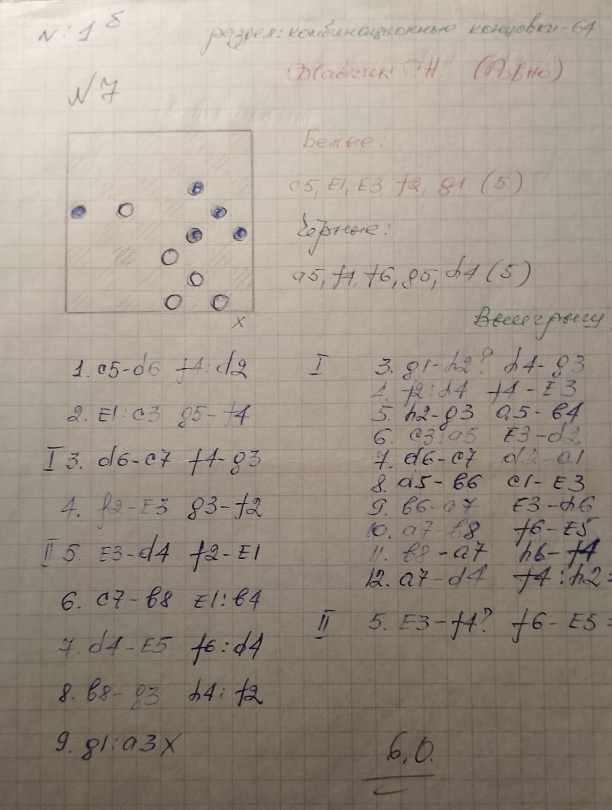 N:1 б
раздел: комбинационные концовки-64
С.Н. (Ровно)
N7
Белые:
c5, E1, E3, f2, g1 (5)
Чёрные:
a5, f4, f6, g5, h4 (5)
x
Выигрыш
1. c5-d6 f4:d2
2. E1:c3 g5-f4
I 3. d6-c7 f4-g3
4. f2-E3 g3-f2
II 5. E3-d4 f2-E1
6. c7-b8 E1:b4
7. d4-E5 f6:d4
8. b8-g3 h4:f2
9. g1:a3 X
I 3. g1-h2? h4-g3
4. f2:h4 f4-E3
5. h2-g3 a5-b4
6. c3:a5 E3-d2
7. d6-c7 d2-c1
8. a5-b6 c1-E3
9. b6-a7 E3-h6
10. a7 b8 f6-E5
11. b8-a7 h6-f4
12. a7-d4 f4:h2=
II 5. E3-f4? f6-E5=
6,0.